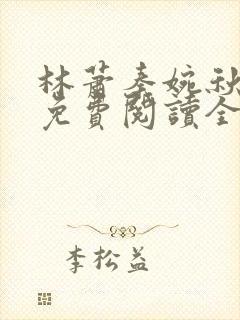 林蕭秦婉秋
免費閱讀全
李松益